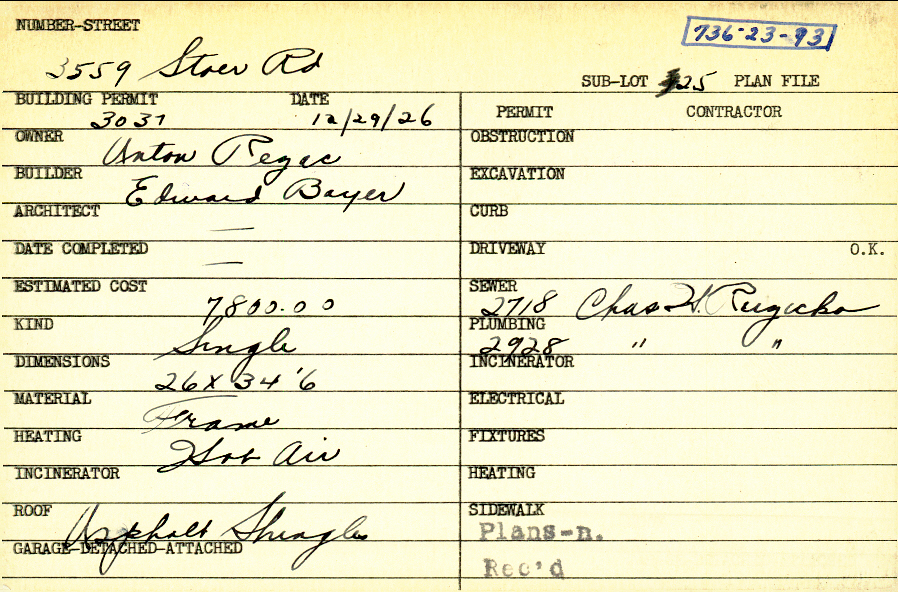 NUMBER-STREET
736-23-93
3559 Stoer Rd
SUB-LOT 25 PLAN FILE
BUILDING PERMIT DATE
3037 12/29/26
PERMIT CONTRACTOR
OWNER Anton Regac
OBSTRUCTION
BUILDER Edward Bayer
EXCAVATION
ARCHITECT —
CURB
DATE COMPLETED —
DRIVEWAY O.K.
ESTIMATED COST 7800.00
SEWER
2718 Chas H. Ruzicka
KIND Single
PLUMBING
2928 " "
DIMENSIONS 26 X 34'6
INCINERATOR
MATERIAL Frame
ELECTRICAL
HEATING Hot Air
FIXTURES
INCINERATOR
HEATING
ROOF Asphalt Shingles
SIDEWALK
Plans-n.
GARAGE-DETACHED-ATTACHED
Rec'd